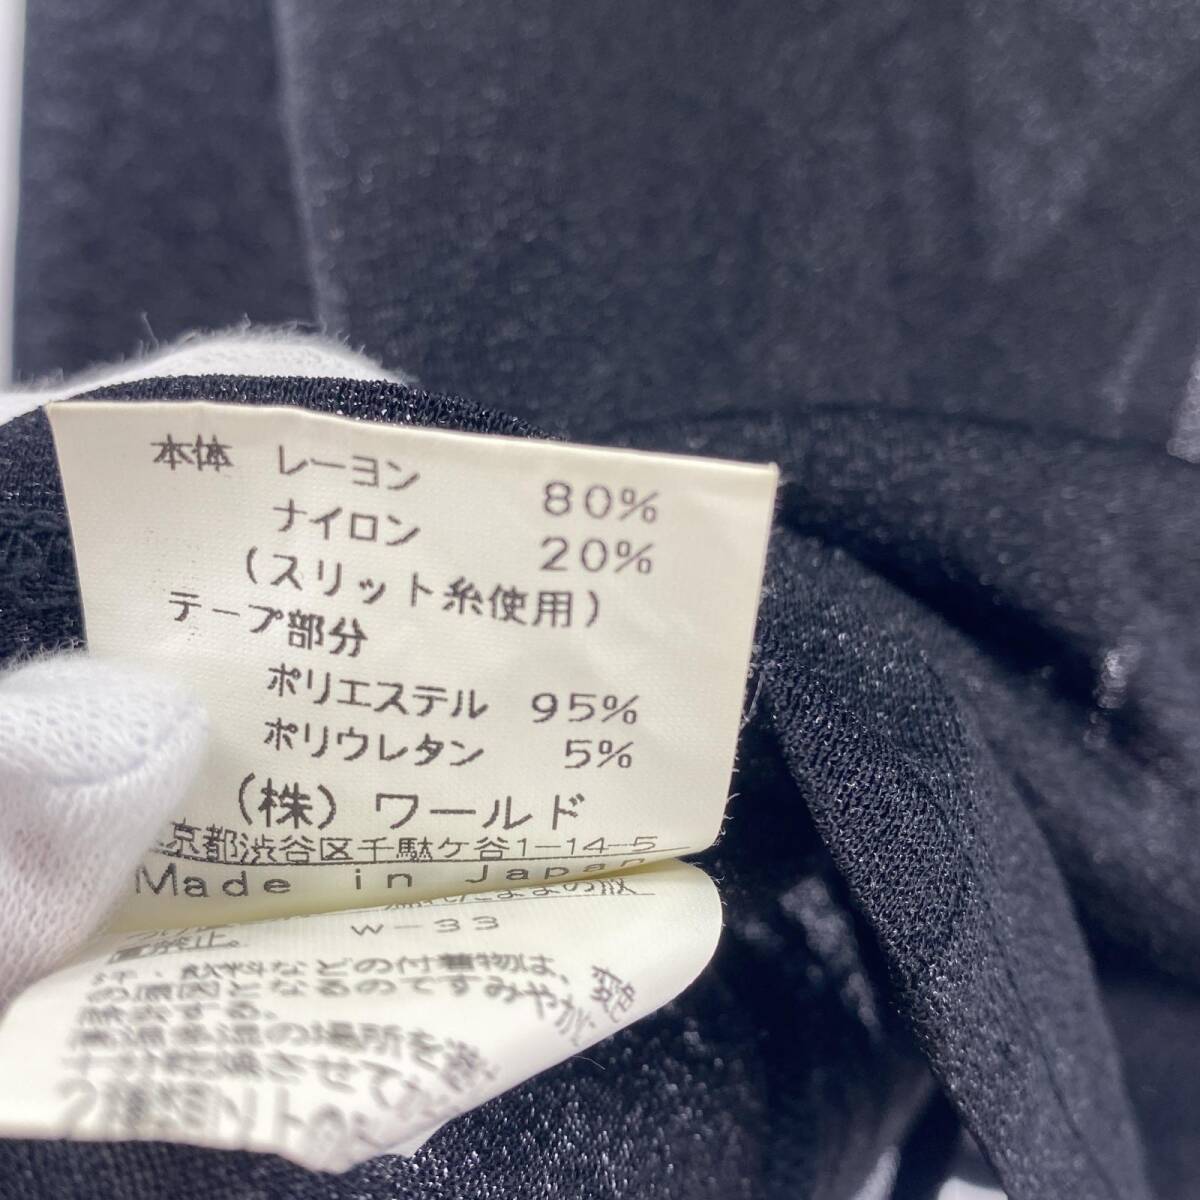 本体 レーヨン 80%
ナイロン 20%
(スリット糸使用)
テープ部分
ポリエステル 95%
ポリウレタン 5%
(株) ワールド
京都渋谷区千駄ケ谷1-14-5
Made in Japan
W-33
飲料などの付着物は、
の原因となるのですみやかに
高温多湿の場所を
十分乾燥させて